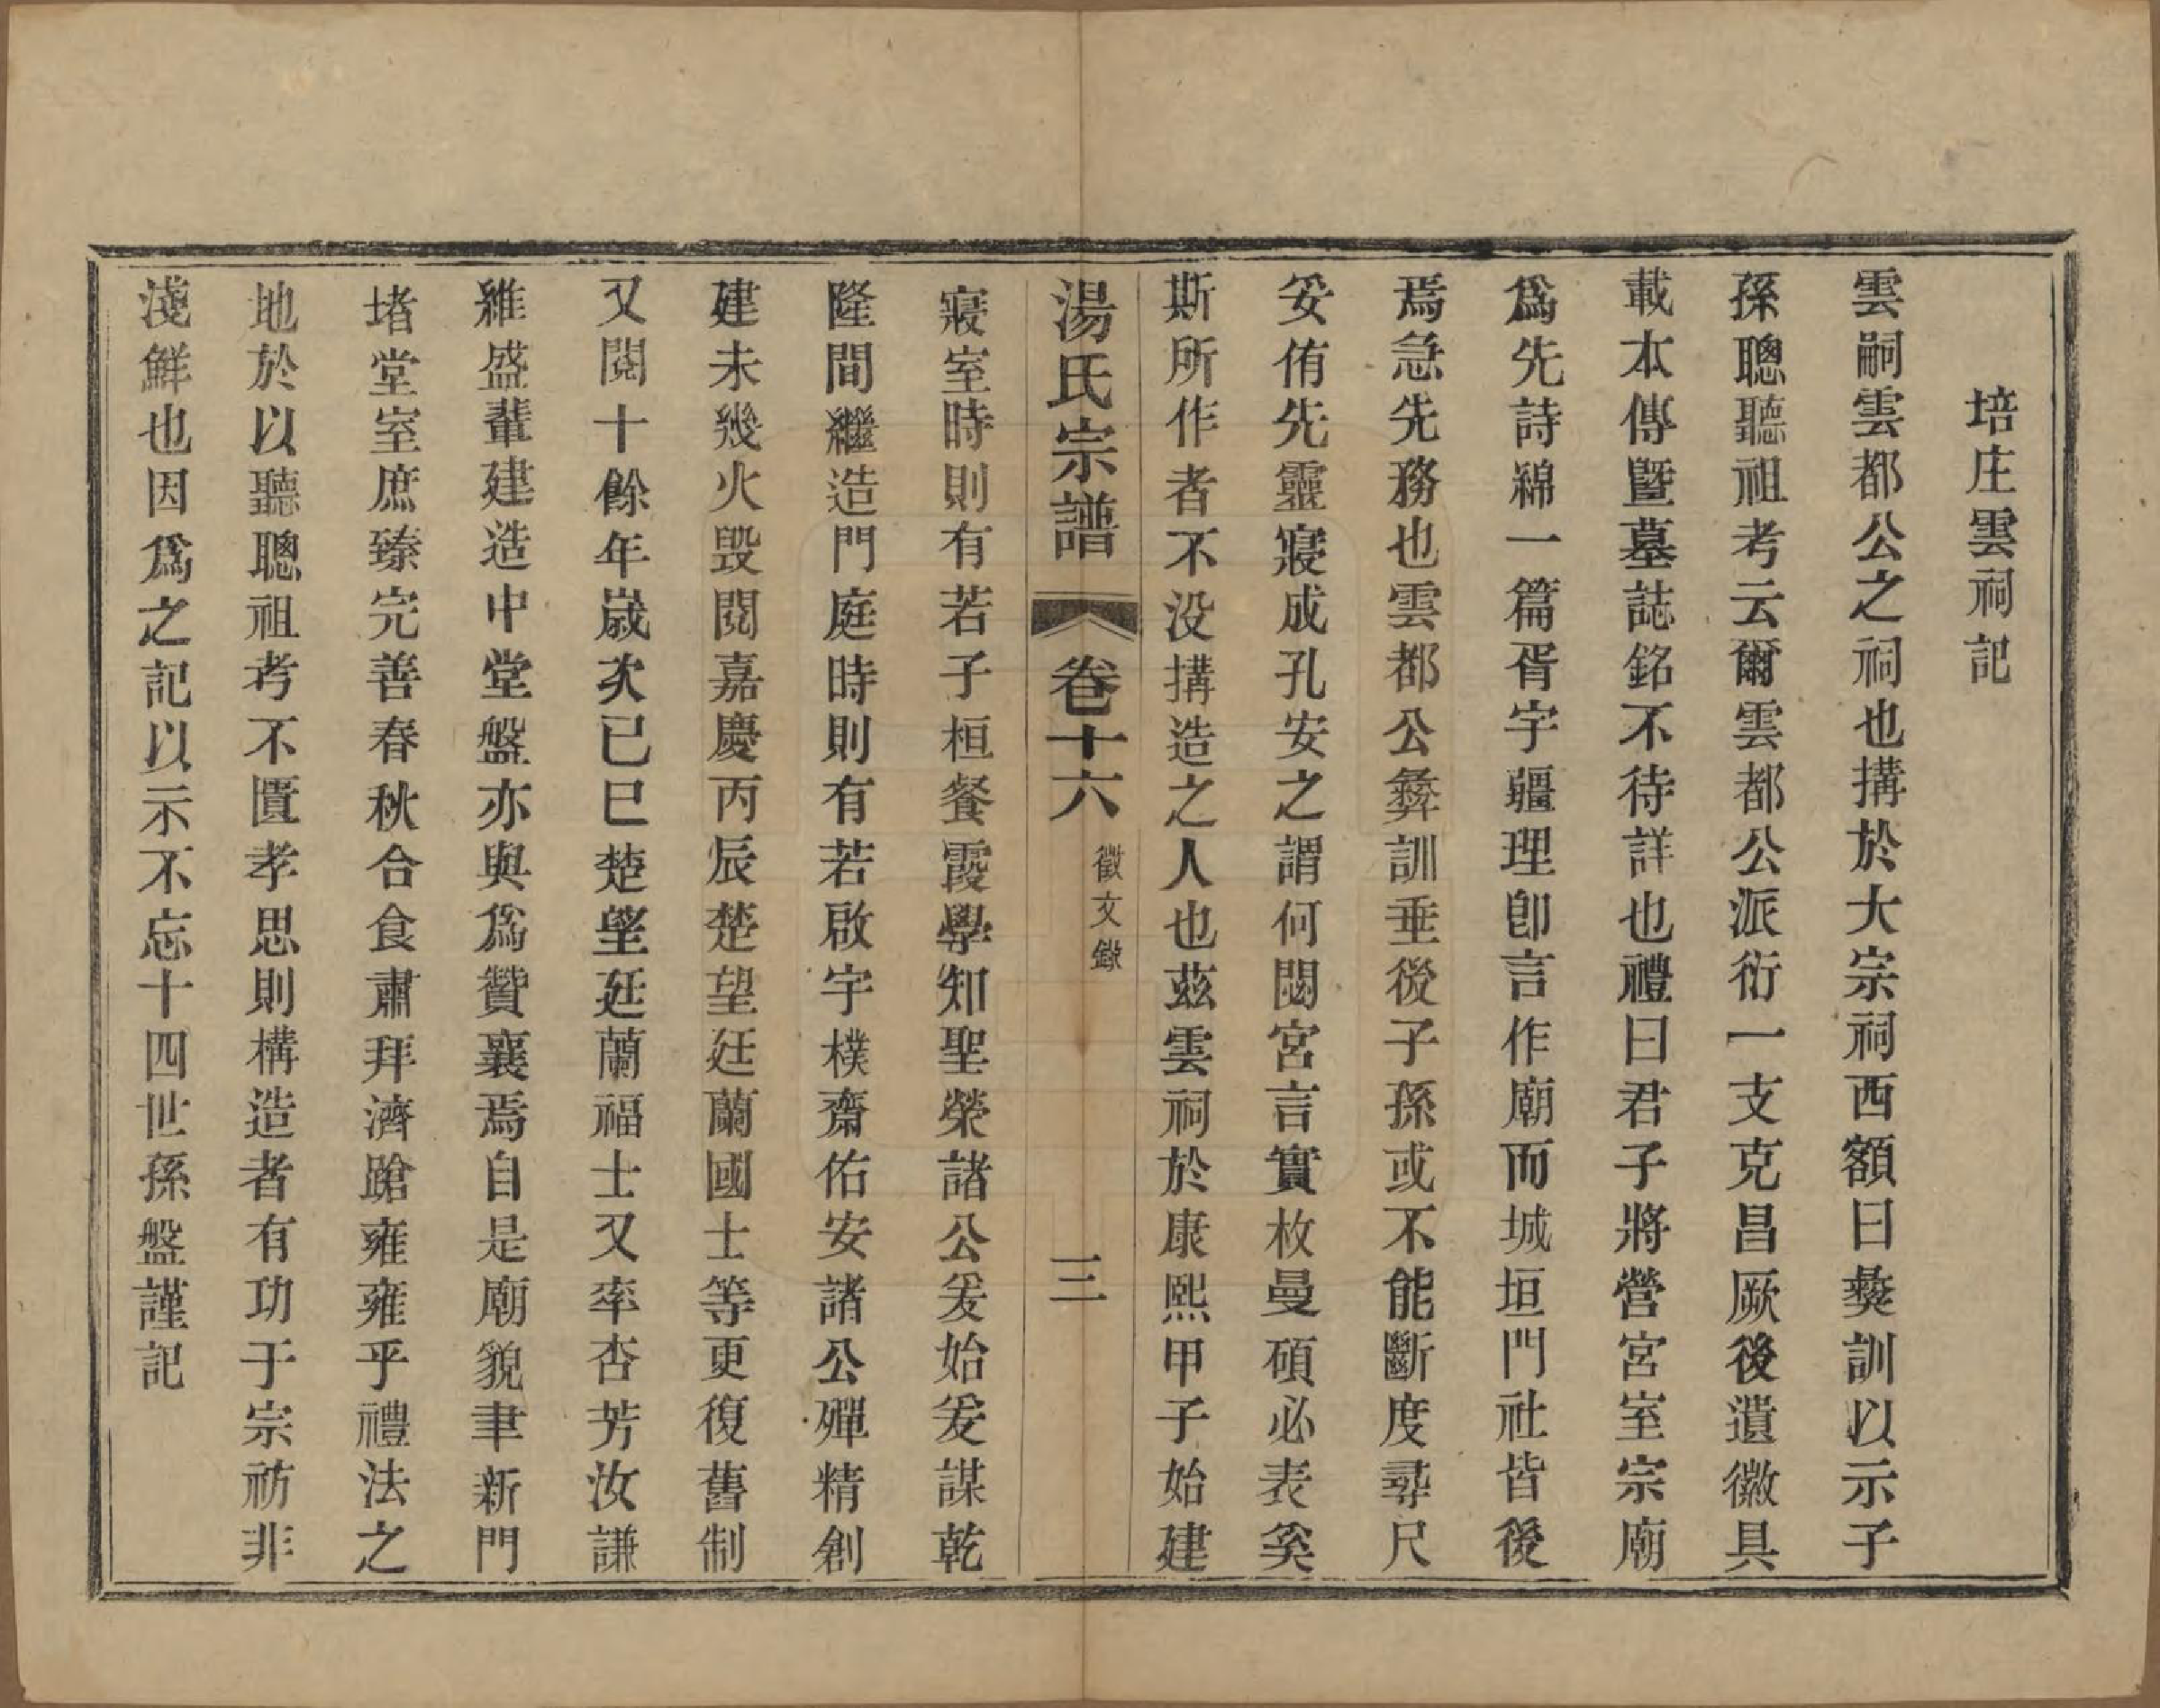 培庄雲祠記
雲嗣雲都公之祠也搆於大宗祠西額曰彜訓以示子
孫聰聽祖考云爾雲都公派衍一支克昌厥後遺徽具
載本傳曁墓誌銘不待詳也禮曰君子將營宮室宗廟
爲先詩綿一篇胥宇疆理卽言作廟而城垣門社皆後
焉急先務也雲都公彜訓垂後子孫或不能斷度尋尺
妥侑先靈寢成孔安之謂何閟宮言實枚曼碩必表奚
斯所作者不没搆造之人也茲雲祠於康熙甲子始建
湯氏宗譜
卷十六
徵文錄
三
寢室時則有若子桓餐霞學知聖榮諸公爰始爰謀乾
隆間繼造門庭時則有若啟宇樸齋佑安諸公殫精創
建未幾火毁閱嘉慶丙辰楚望廷蘭國士等更復舊制
又閱十餘年歲次已巳楚望廷蘭福士又率杏芳汝謙
維盛輩建造中堂盤亦與爲贊襄焉自是廟貌聿新門
堵堂室庶臻完善春秋合食肅拜濟蹌雍雍乎禮法之
地於以聽聰祖考不匱孝思則構造者有功于宗祊非
淺鮮也因爲之記以示不忘十四世孫盤謹記